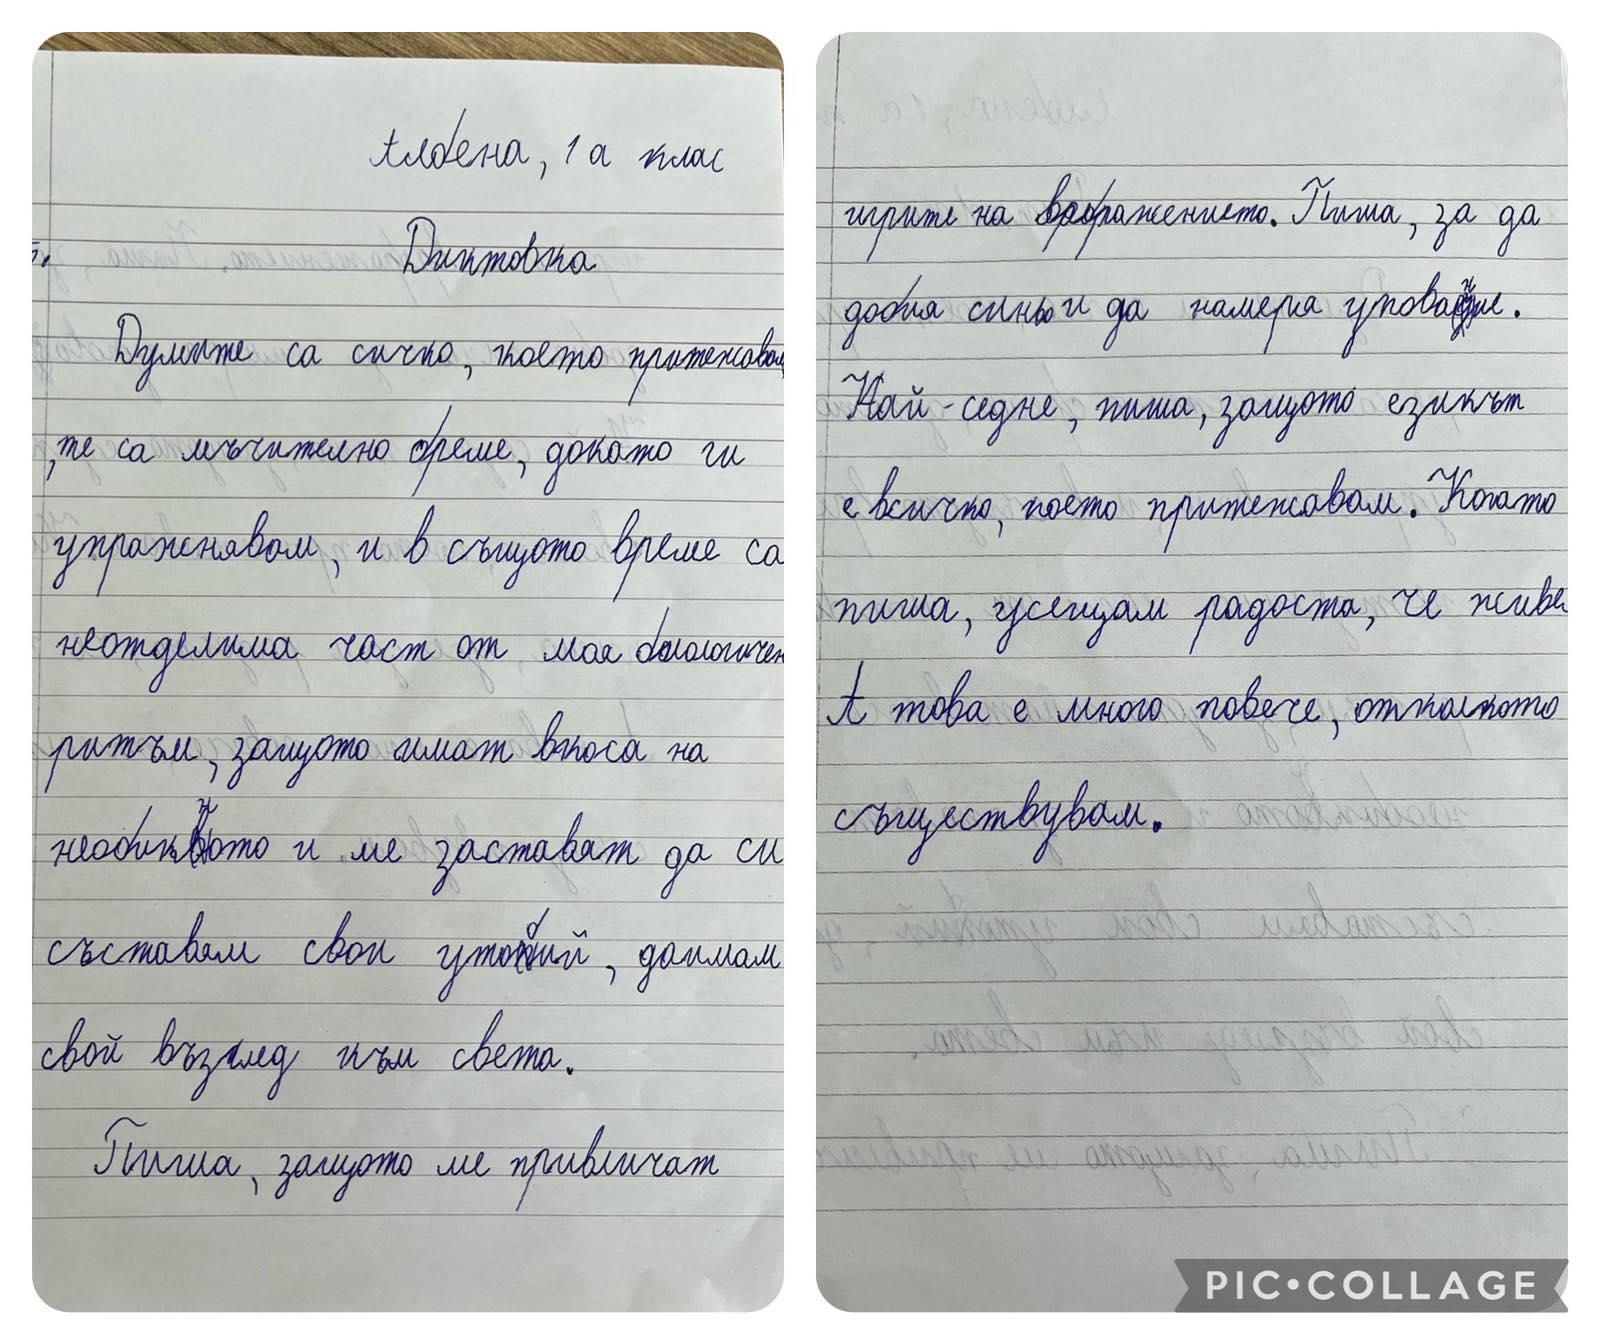 Албена, 1 а клас
Диктовка
Думите са сичко, което притежавам
, те са мъчително бреме, докато ги
упражнявам, и в същото време са
неотделима част от моя биологичен
ритъм, защото имат вкоса на
необикното и ме заставят да си
съставям свои утобий, даимам
свой възглед към света.
Пиша, защото ме привличат
игрите на вображението. Пиша, за да
добия синьо и да намеря упование.
Най-седне, пиша, защото езикът
е всичко, което притежавам. Когато
пиша, усещам радоста, че живе
А това е много повече, отколкото
съществувам.
PIC•COLLAGE